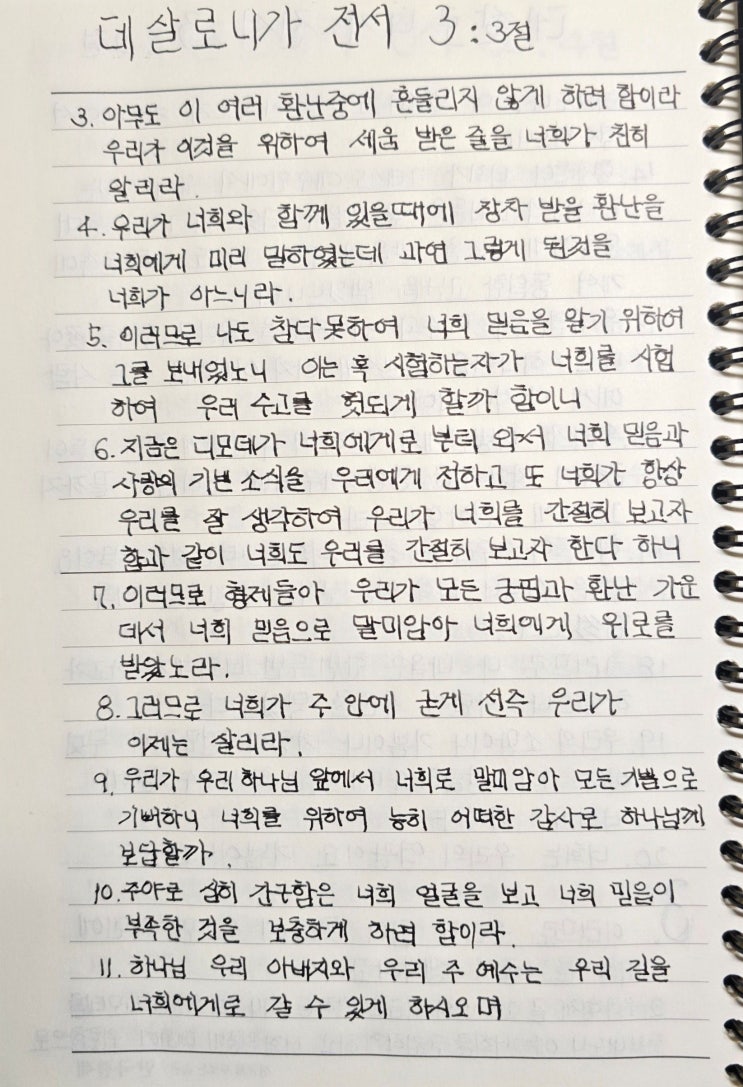 데살로니가 전서 3:3절
3. 아무도 이 여러 환난중에 흔들리지 않게 하려 함이라
우리가 이것을 위하여 세움 받은 줄을 너희가 친히
알리라.
4. 우리가 너희와 함께 있을때에 장차 받을 환난을
너희에게 미리 말하였는데 과연 그렇게 된것을
너희가 아느니라.
5. 이러므로 나도 참다못하여 너희 믿음을 알기 위하여
그를 보내었노니 이는 혹 시험하는자가 너희를 시험
하여 우리 수고를 헛되게 할까 함이니
6. 지금은 디모데가 너희에게로 부터 와서 너희 믿음과
사랑의 기쁜 소식을 우리에게 전하고 또 너희가 항상
우리를 잘 생각하여 우리가 너희를 간절히 보고자
함과 같이 너희도 우리를 간절히 보고자 한다 하니
7. 이러므로 형제들아 우리가 모든 궁핍과 환난 가운
데서 너희 믿음으로 말미암아 너희에게 위로를
받았노라.
8. 그러므로 너희가 주 안에 굳게 선즉 우리가
이제는 살리라.
9. 우리가 우리 하나님 앞에서 너희로 말미암아 모든 기쁨으로
기뻐하니 너희를 위하여 능히 어떠한 감사로 하나님께
보답할까.
10. 주야로 심히 간구함은 너희 얼굴을 보고 너희 믿음이
부족한 것을 보충하게 하려 함이라.
11. 하나님 우리 아버지와 우리 주 예수는 우리 길을
너희에게로 갈 수 있게 하시오며